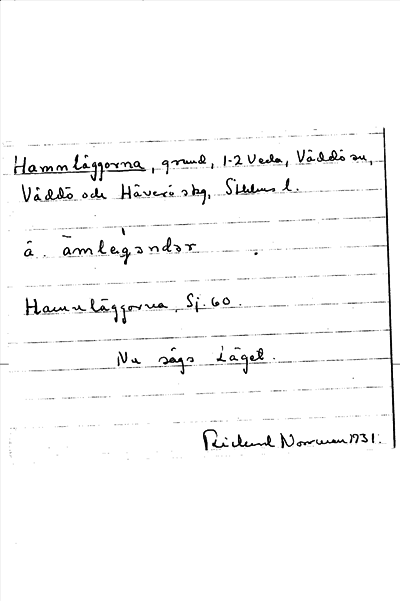 Hamnläggorna, grund, 1-2 Veda, Väddö sn,
Väddö och Häverö skg, Sthlms l.
å. āmlegəndər
Hamnläggorna, Sj. 60.
Nu sägs Läget.
Rickard Norrman 1931.